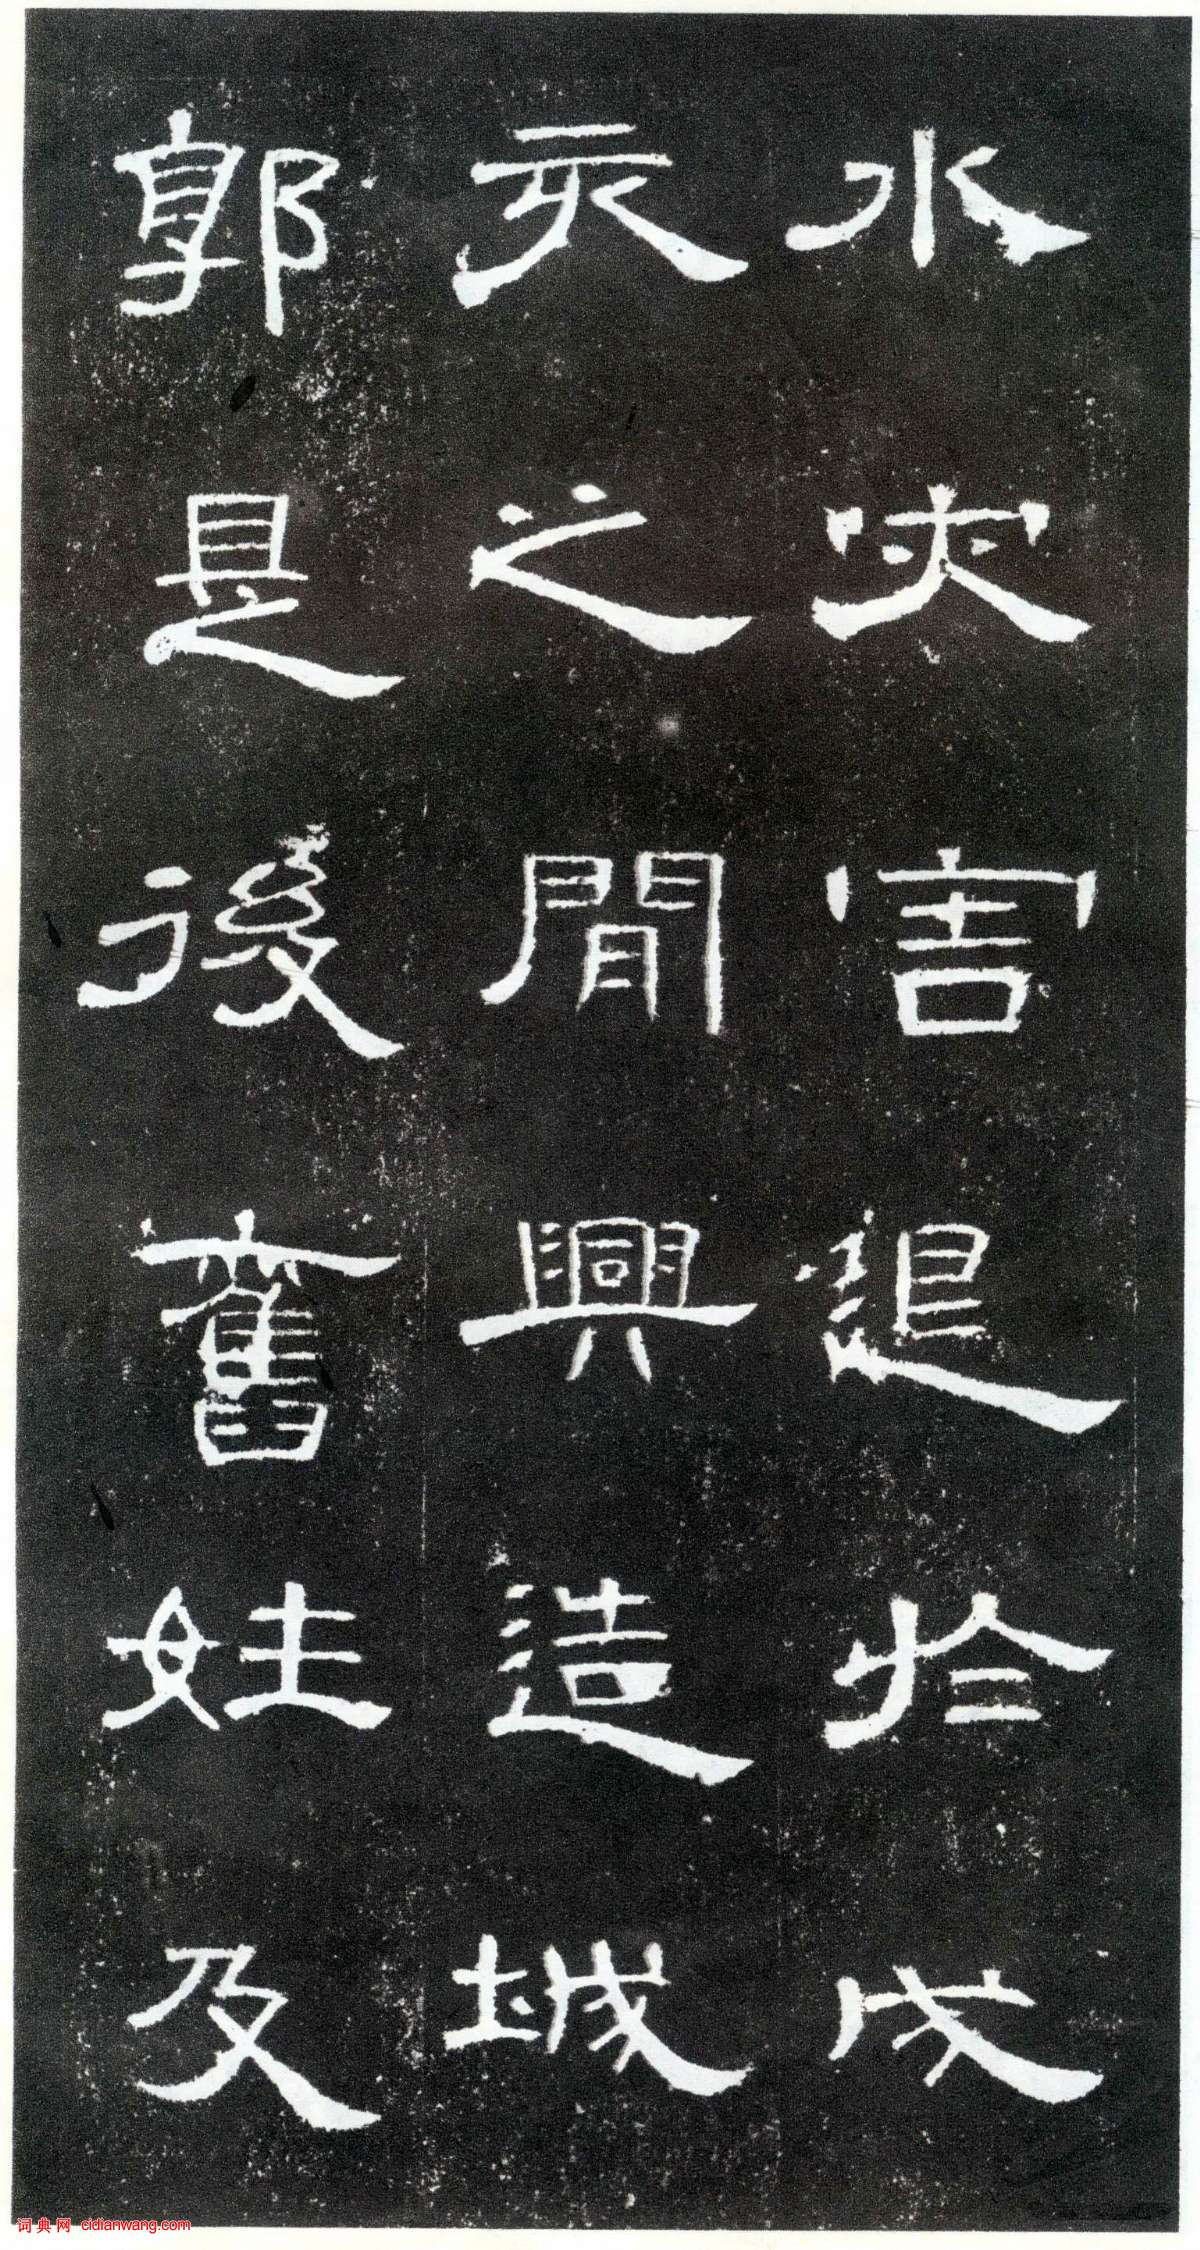 水灾害退於戌
亥之間興造城
郭是後舊姓及
词典网 cidianwang.com